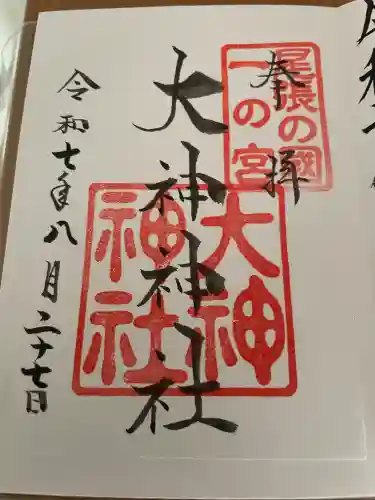 奉拝
尾張の國
一の宮
大神神社
大神
神社
大神神社
令和七年八月二十七日